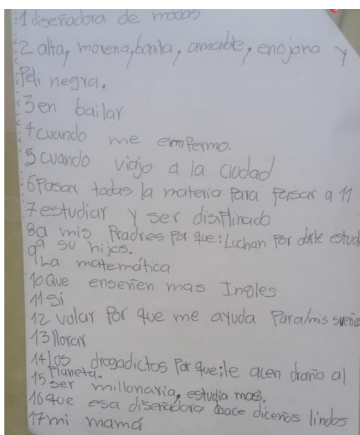 1 diseñadora de modas
2 alta, morena, bonita, amable, enojona y
Peli negra.
3 en bailar
4 cuando me enfermo.
5 cuando viajo a la ciudad
6 Pasar todas la materia Para Pasar a 11
7 estudiar y ser disiplinado
8 a mis Pradres Por que: Luchan Por darle estud
9 a su hijos.
9 La matemática
10 Que enseñen mas Ingles
11 Si
12 volar Por que me ayuda Para mis sueños
13 llorar
14 Los drogadictos Por que: le acen draño al
Planeta.
15 ser millonaria, estudia mas.
16 que esa diseñadora hace diceños lindos
17 mi mamá